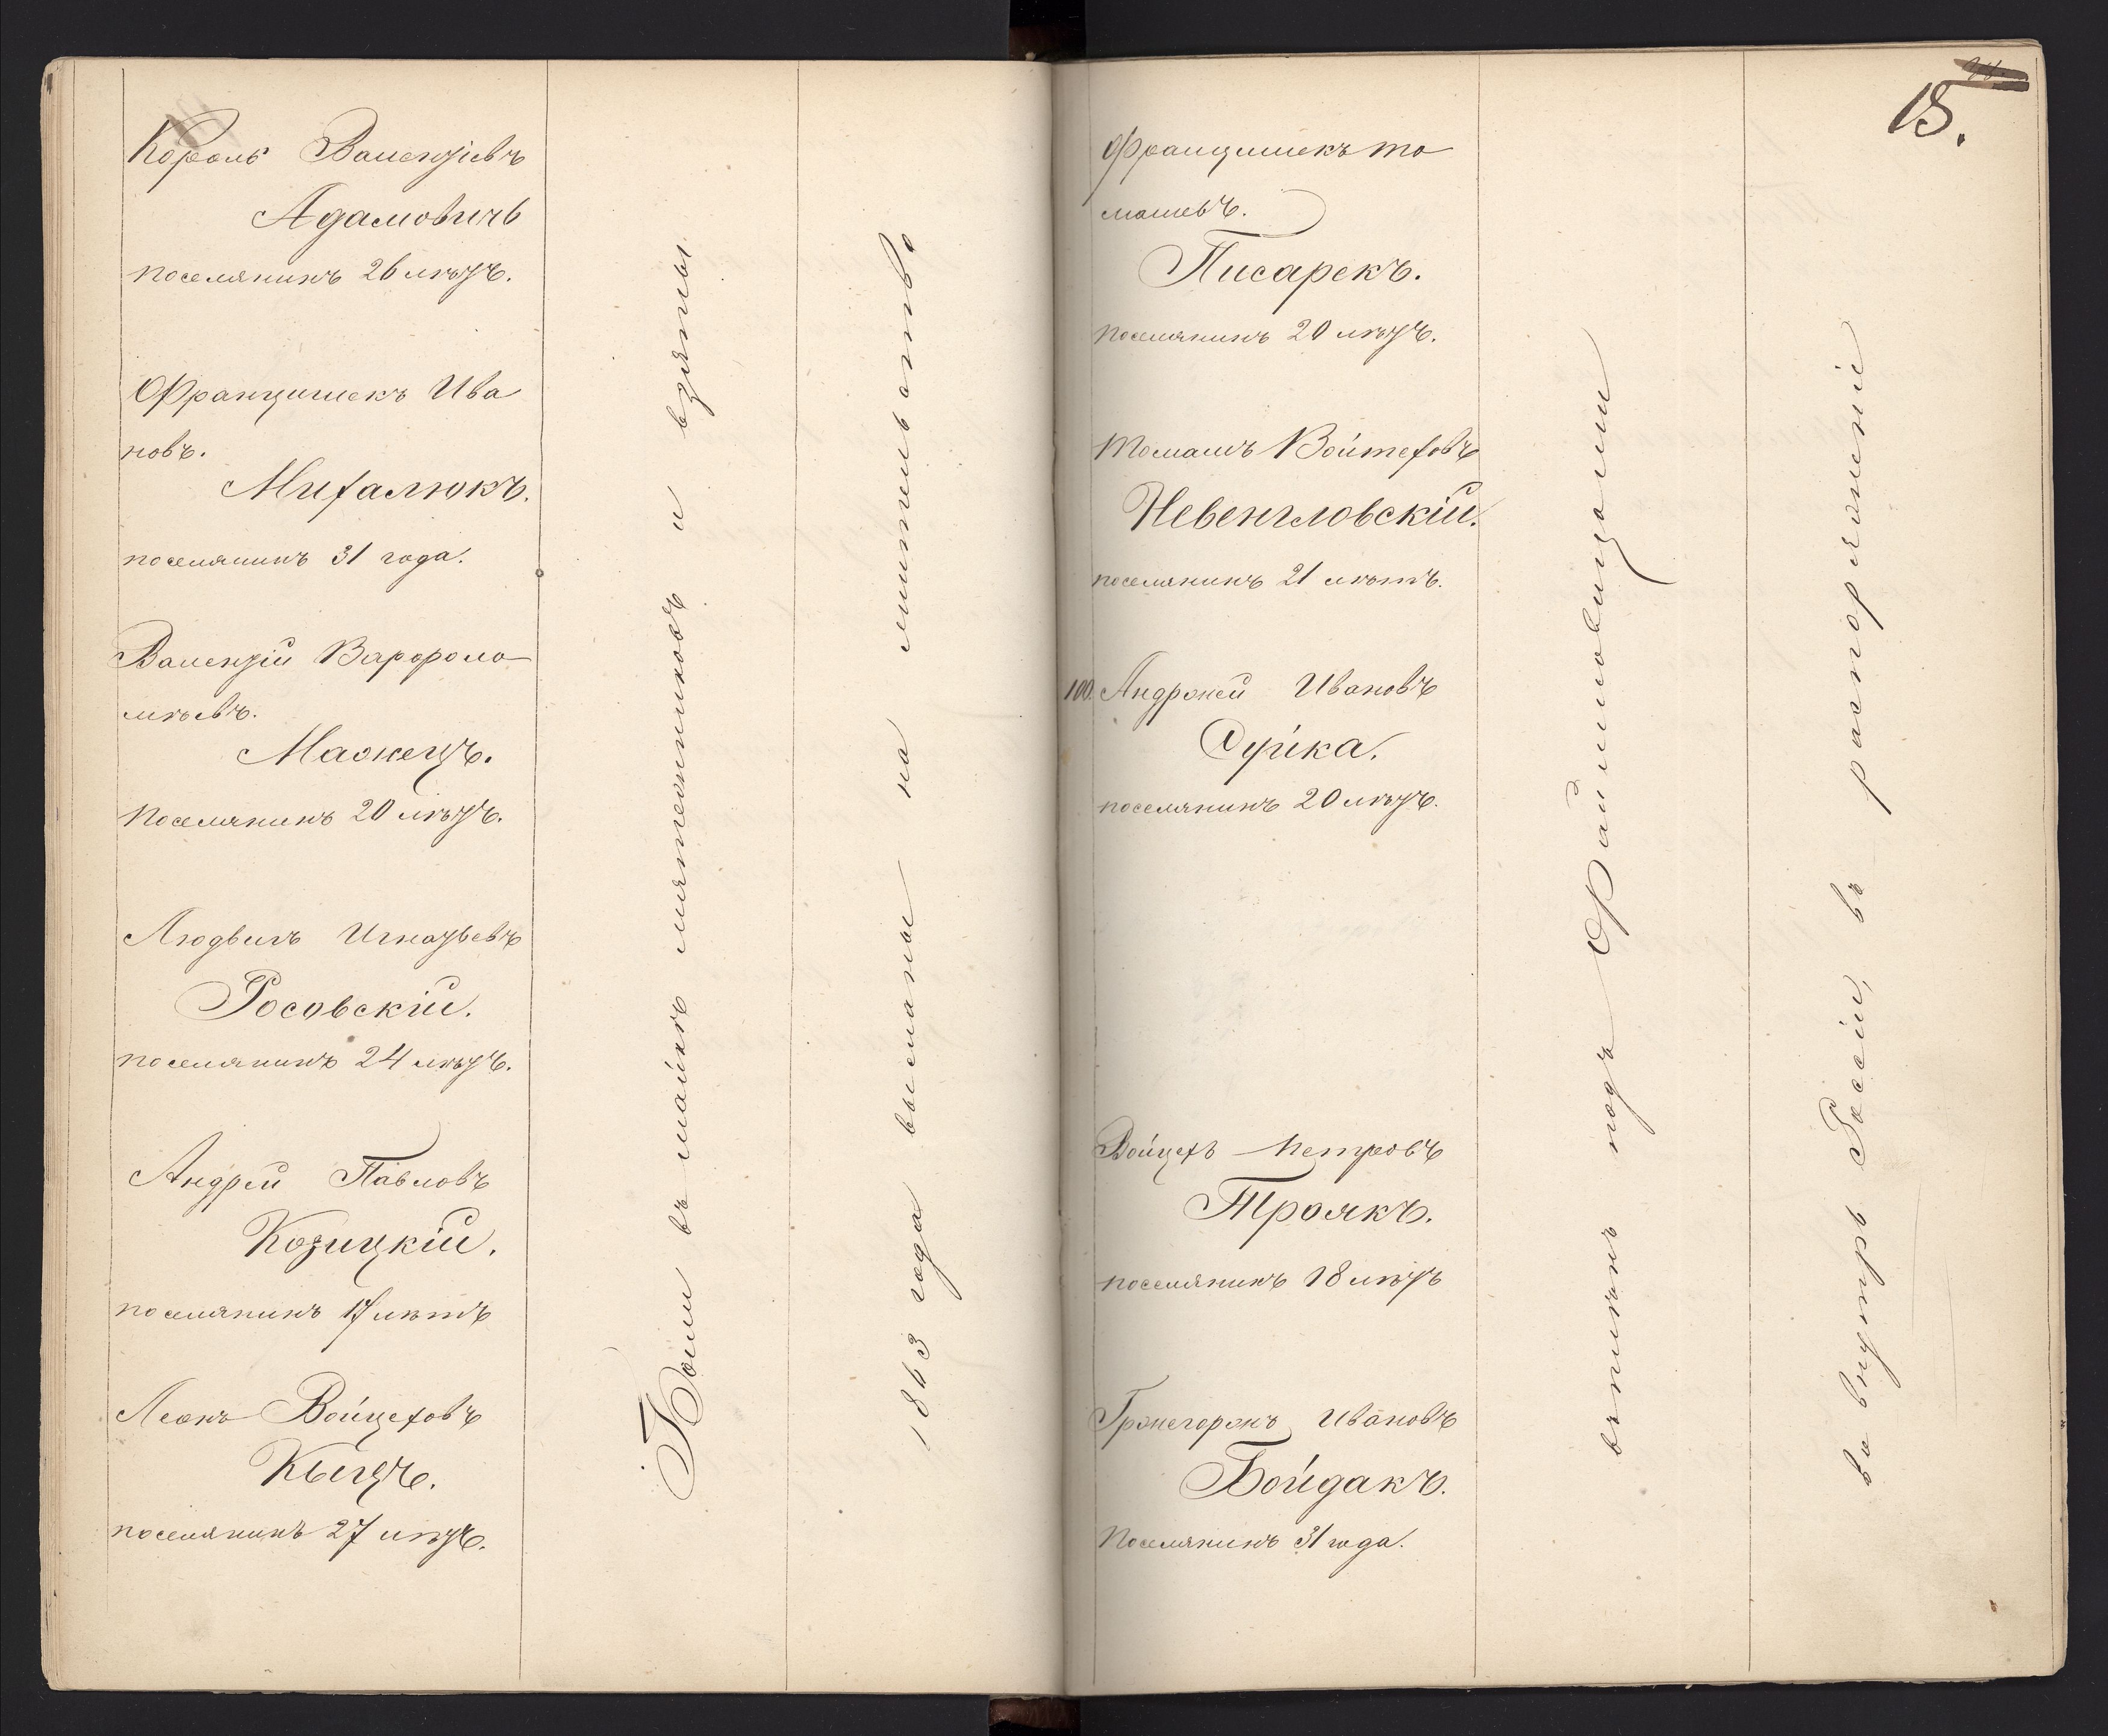 Кароль Валенціевъ
Адамовичъ
поселянинъ 26 лѣтъ.
Францишекъ Ива
новъ.
Михалюкъ.
поселянинъ 31 года.
Валенцій Варфоло-
мѣевъ.
Мажецъ.
поселянинъ 20 лѣтъ.
Людвигъ Игнатьевъ
Росовскій.
поселянинъ 24 лѣтъ.
Андрей Павловъ
Козицкій.
поселянинъ 17 лѣтъ
Леонъ Войцеховъ
Кыцъ.
поселянинъ 27 лѣтъ.
Были въ шайкѣ мятежниковъ и взяты
1863 года высланы на жительство
15.
Францишекъ То
машевъ.
Писарекъ.
поселянинъ 20 лѣтъ.
Томашъ Войтеховъ
Невенгловскій.
поселянинъ 21 лѣтъ.
100. Андржей Ивановъ
Суйка.
поселянинъ 20 лѣтъ.
Войцехъ Петровъ
Троякъ.
поселянинъ 18 лѣтъ
Гржегоржъ Ивановъ
Бойдакъ.
Поселянинъ 31 года.
въ плѣнъ подъ Файславицами
во внутрь Россіи, въ распоряженіе